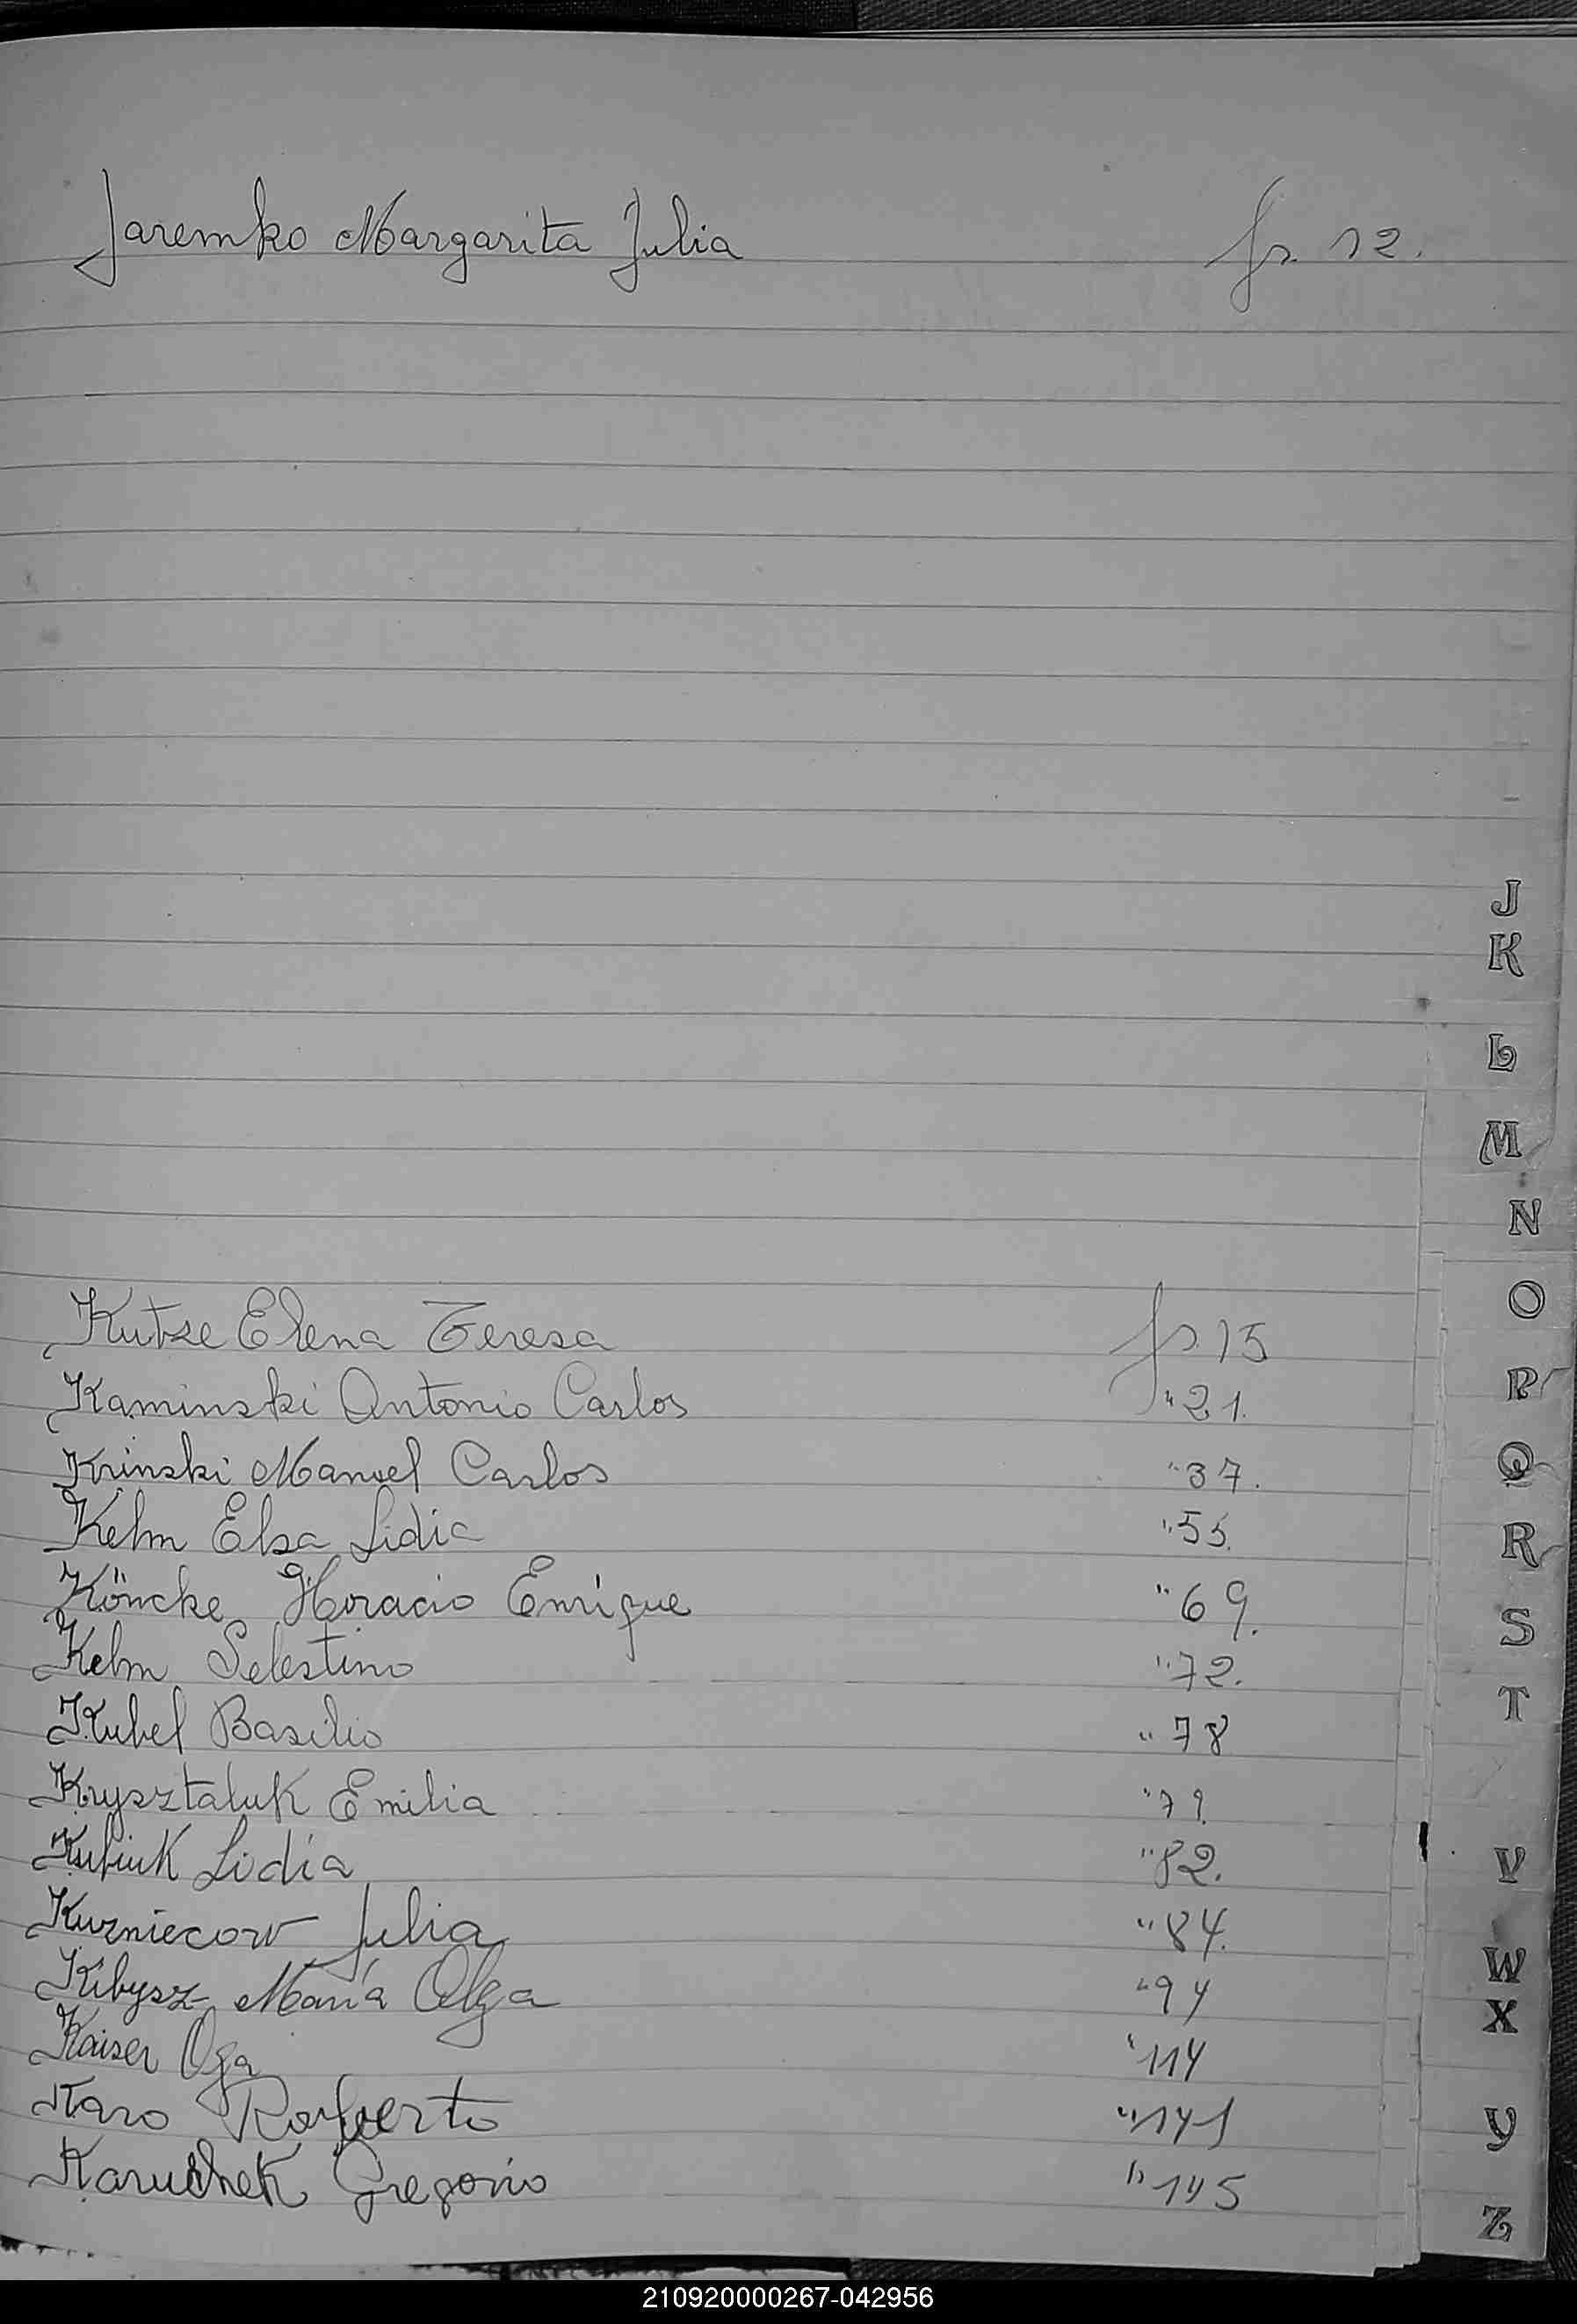 Jaremko Margarita Julia fs. 12.
J
K
L
M
N
O
P
Q
R
S
T
V
W
X
Y
Z
Kutze Elena Teresa fs 15
Kaminski Antonio Carlos "21.
Krinski Manuel Carlos "37.
Kelm Elsa Lidia "55.
Köncke Horacio Enrique "69.
Kelm Selestino "72.
Kubel Basilio "78
Krysztaluk Emilia "79.
Kubiuk Lidia "82.
Kurniecow Julia "84.
Kibysz María Olga "94
Kaiser Oga "114
Karo Roberto "141
Karuchek Gregorio "145
210920000267-042956